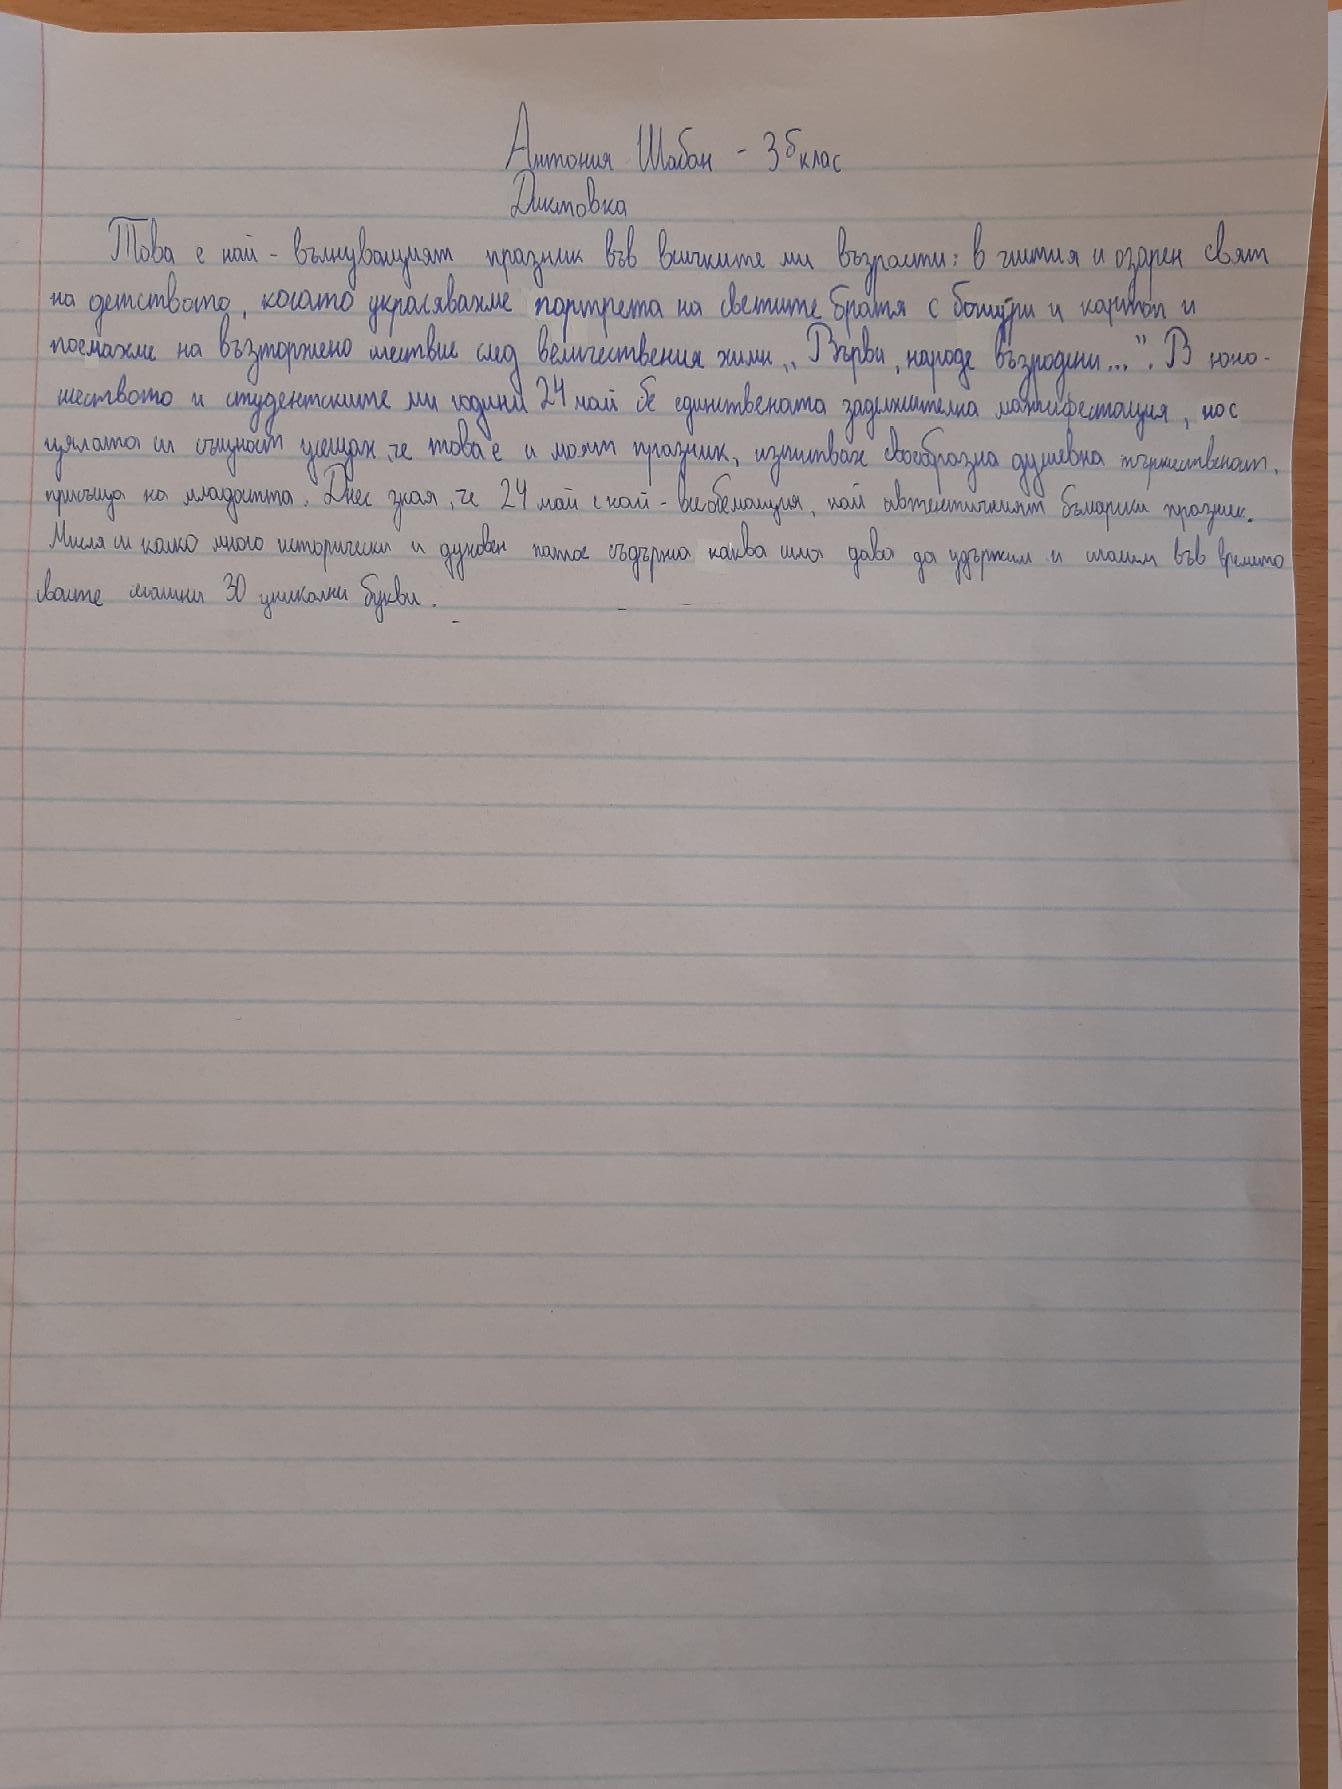 Антония Шабан - 3б клас
Диктовка
Това е най - вълнуващият празник във всичките ми възрасти: в чистия и озарен свят
на детството, когато украсявахме портрета на светите братя с божури и картон и
поемахме на възторжено шествие след величествения химн „Върви, народе възродени...". В юно-
шеството и студентските ми години 24 май бе единствената задължителна манифестация,
цялата си същност усещах, че това е и моят празник, изпитвах своеобразна душевна тържественост,
присъща на младостта. Днес зная, че 24 май е най - всеобемащия, най автентичният български празник.
Мисля си колко много исторически и духовен патос съдържа каква сила дава да удържим и във времето
своите 30 уникални букви.